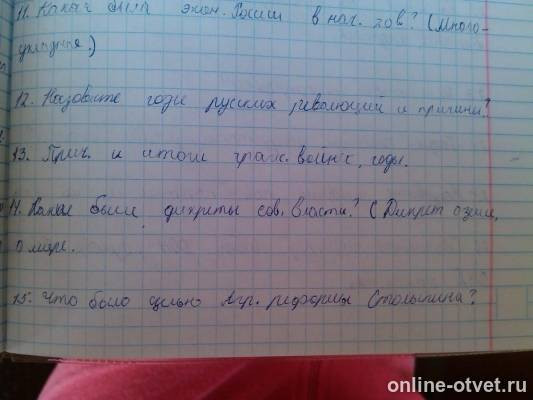 11. Какая была экон. России в нач. 20в? (Много-
укладная.)
12. Назовите годы русских революций и причины?
13. Прич. и итоги граж. войны, годы.
14. Какие были дикреты сов. власти? (Дикрет о земле,
о мире.
15. Что было целью Агр. реформы Столыпина?
online-otvet.ru